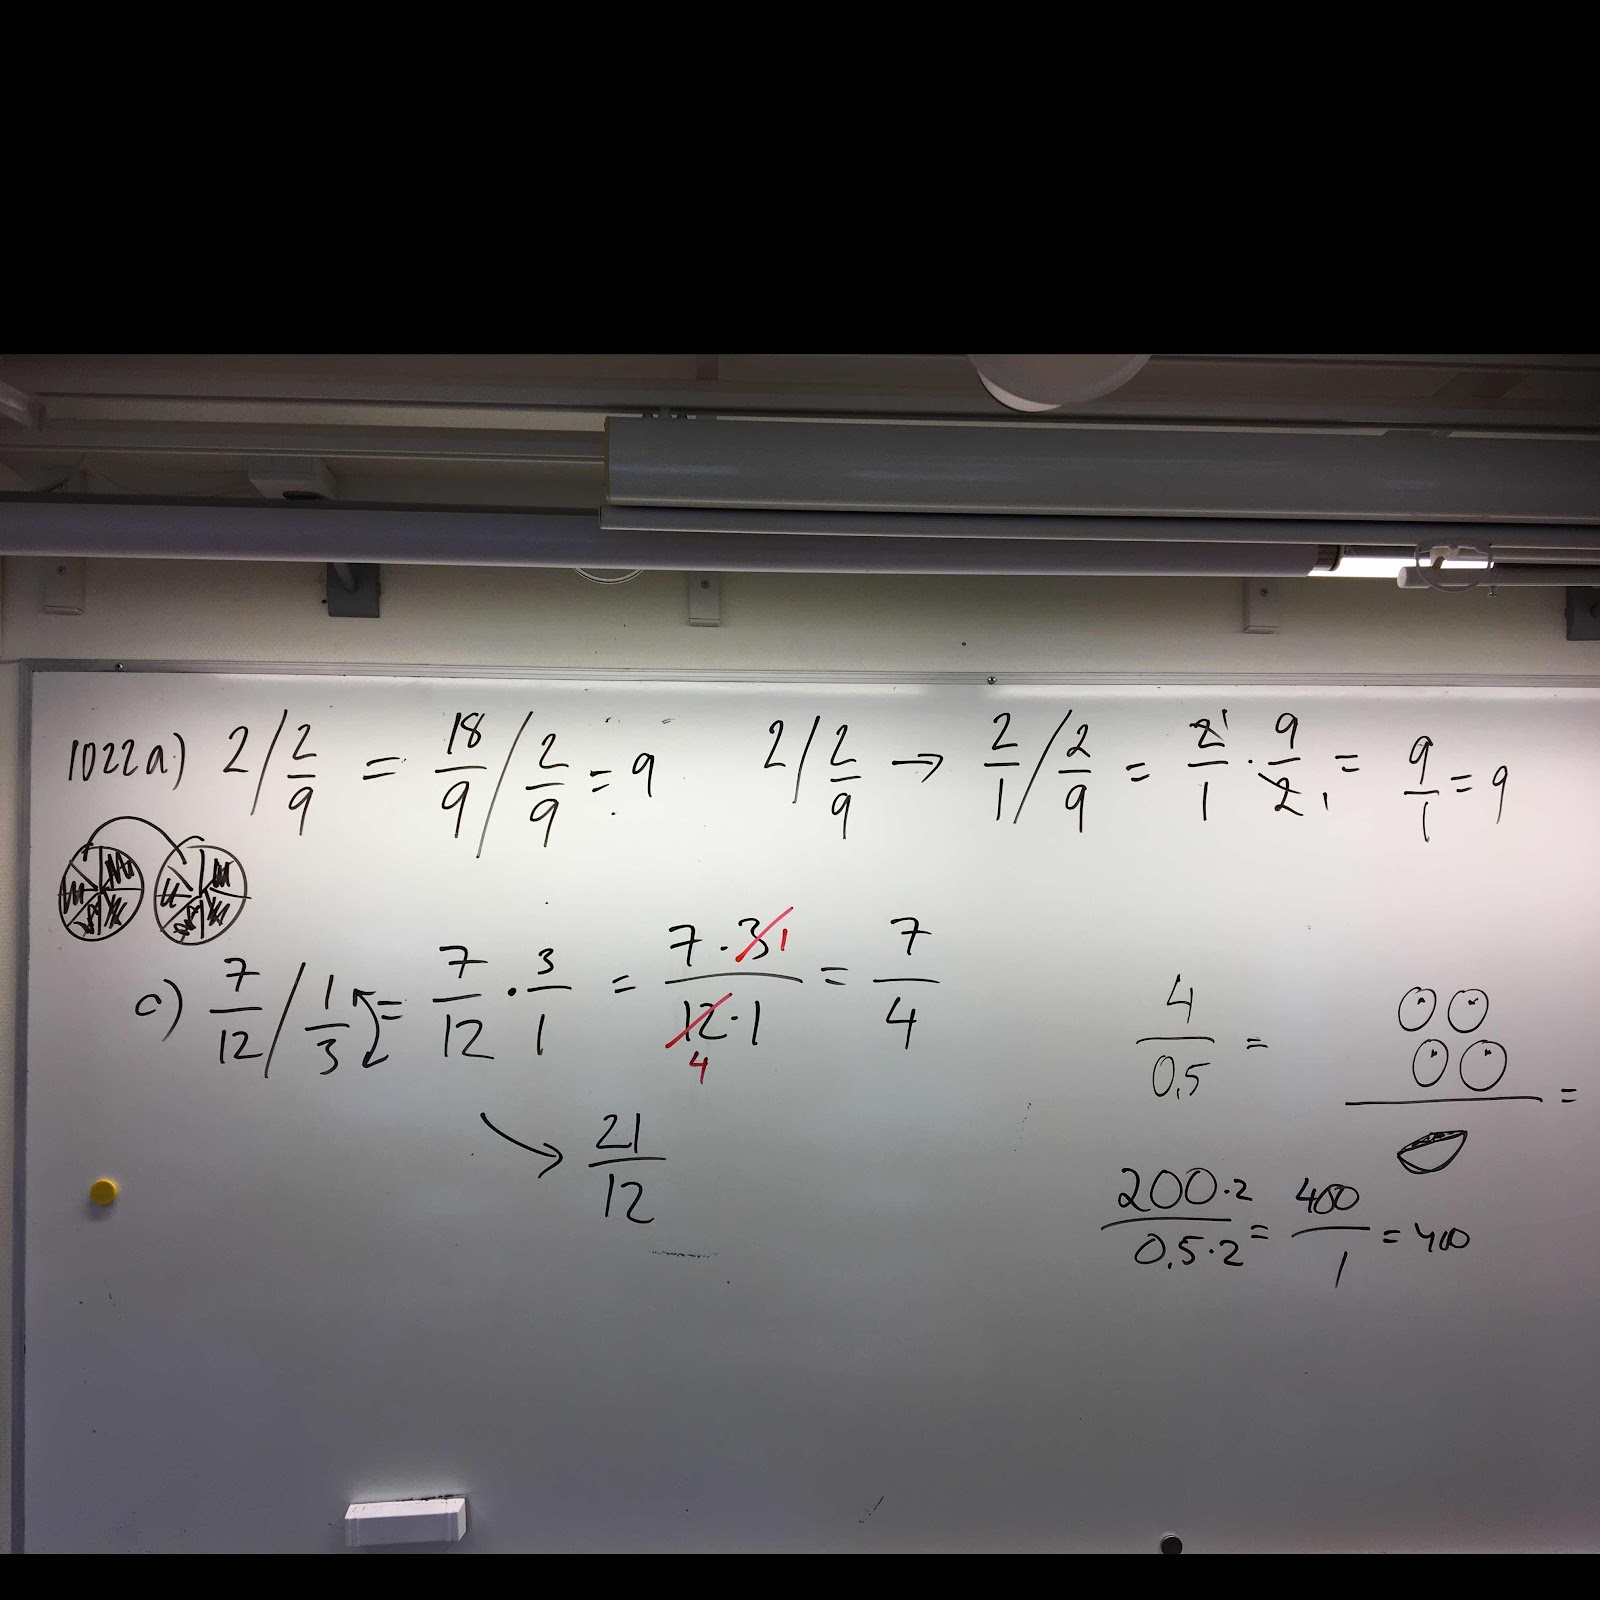 1022a) 2 / 2/9 = 18/9 / 2/9 = 9    2 / 2/9 → 2/1 / 2/9 = 2/1 1 · 9/2 1 = 9/1 = 9
c) 7/12 / 1/3 = 7/12 · 3/1 = 7 · 3 1 / 12 · 1 4 = 7/4
→ 21/12
4/0,5 =    =
200 · 2 / 0,5 · 2 = 400/1 = 400